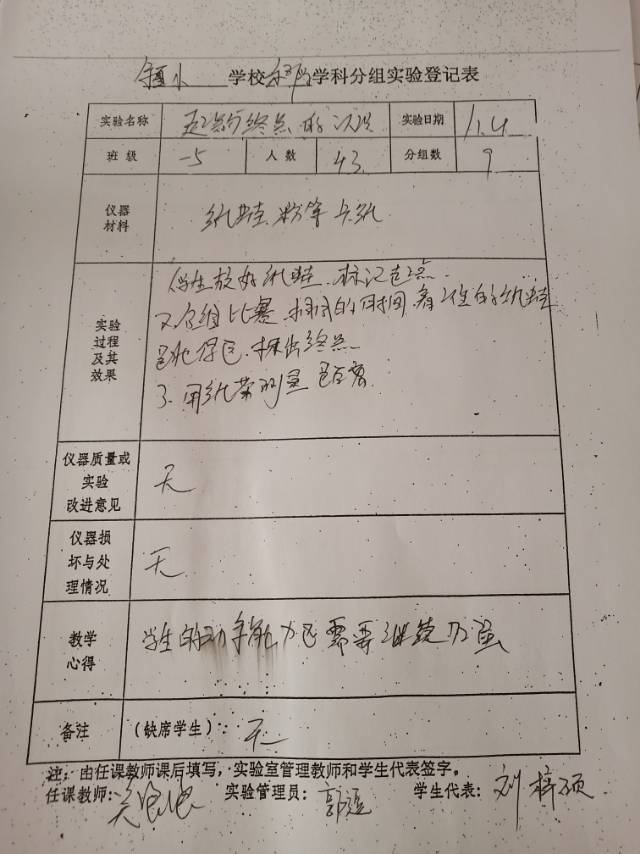 镇小 学校科学学科分组实验登记表
实验名称 起点和终点的 实验日期 11.4
班级 一5 人数 43 分组数 9
仪器材料 纸蛙 粉笔 卡纸
实验过程及其效果
学生放好纸蛙,标记起点.
2 分组比赛 相同的时间,看谁的纸蛙
跳得远,标出终点.
3. 用纸带测量距离
仪器质量或实验改进意见 无
仪器损坏与处理情况 无
教学心得 学生的动手能力还需要继续加强
备注 (缺席学生): 无
注:由任课教师课后填写,实验室管理教师和学生代表签字。
任课教师: 实验管理员:郭 学生代表:刘梓硕